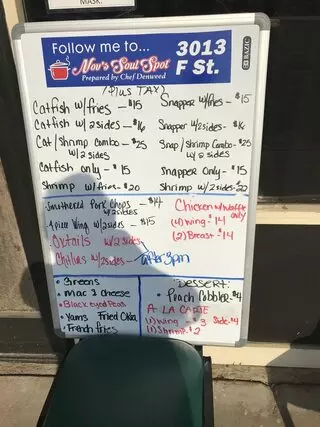 MASK.
Follow me to...
Nov's Soul Spot
Prepared by Chef Denweed
3013
F St.
BAZIC
(Plus TAX)
Catfish w/fries - $15
Catfish w/2sides - $16
Cat/shrimp Combo - $25
w/2 sides
Catfish only - $15
Shrimp w/fries - $20
Snapper w/fries - $15
Snapper w/2sides - $16
Snap/shrimp Combo - $25
w/2 sides
Snapper only - $15
Shrimp w/2sides - $20
Smothered Pork Chops - $14
w/2sides
4piece Wing w/2sides - $15
Oxtails w/2sides
Chitlins w/2sides
after 3pm
Chicken w/waffle
only
(4) Wing - $14
(2) Breast - $14
• Greens
• Mac & Cheese
• Black eyed Peas
• Yams Fried Okra
• French fries
Dessert:
• Peach Cobbler - $4
A LA CARTE
(1) Wing $3 Side $4
(1) Shrimp $2